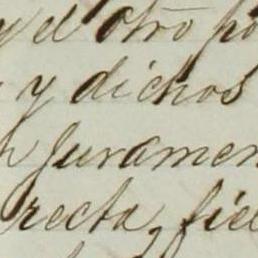 y el otro po
y dichos
n Juramen
recta, fiel